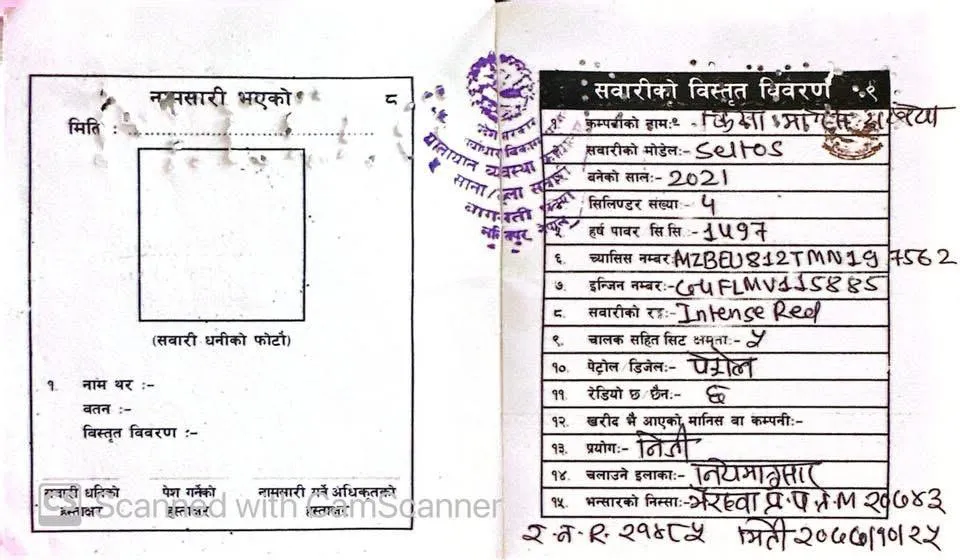 नामसारी भएको ८
मिति :
(सवारी धनीको फोटौ)
१. नाम थर :-
वतन :-
विस्तृत विवरण :-
सवारी धनिको
हस्ताक्षर
पेश गर्नेको
हस्ताक्षर
नामसारी गर्ने अधिकृतको
हस्ताक्षर
Scanned with CamScanner
यातायात व्यवस्था
लुम्बिनी
सवारीको विस्तृत विवरण ९
१. कम्पनीको नाम:- किया मोटर्स
सवारीको मोडेल:- Seltos
बनेको साल:- 2021
सिलिण्डर संख्या:- ५
हर्ष पावर सि सि:- 1497
६. च्यासिस नम्बर:- MZBEU812TMN197562
७. इन्जिन नम्बर:- G4FLMV115885
८. सवारीको रङ:- Intense Red
९. चालक सहित सिट क्षमता:- ५
१०. पेट्रोल / डिजेल:- पेट्रोल
११. रेडियो छ/छैन:- छ
१२. खरीद भै आएको मानिस वा कम्पनी:-
१३. प्रयोग:- निजी
१४. चलाउने इलाका:- नियमानुसार
१५. भन्सारको निस्सा:- भैरहवा प्र.प.न. M २०७४३
र.न. R. २१४८५ मिति २०७७/१०/२५